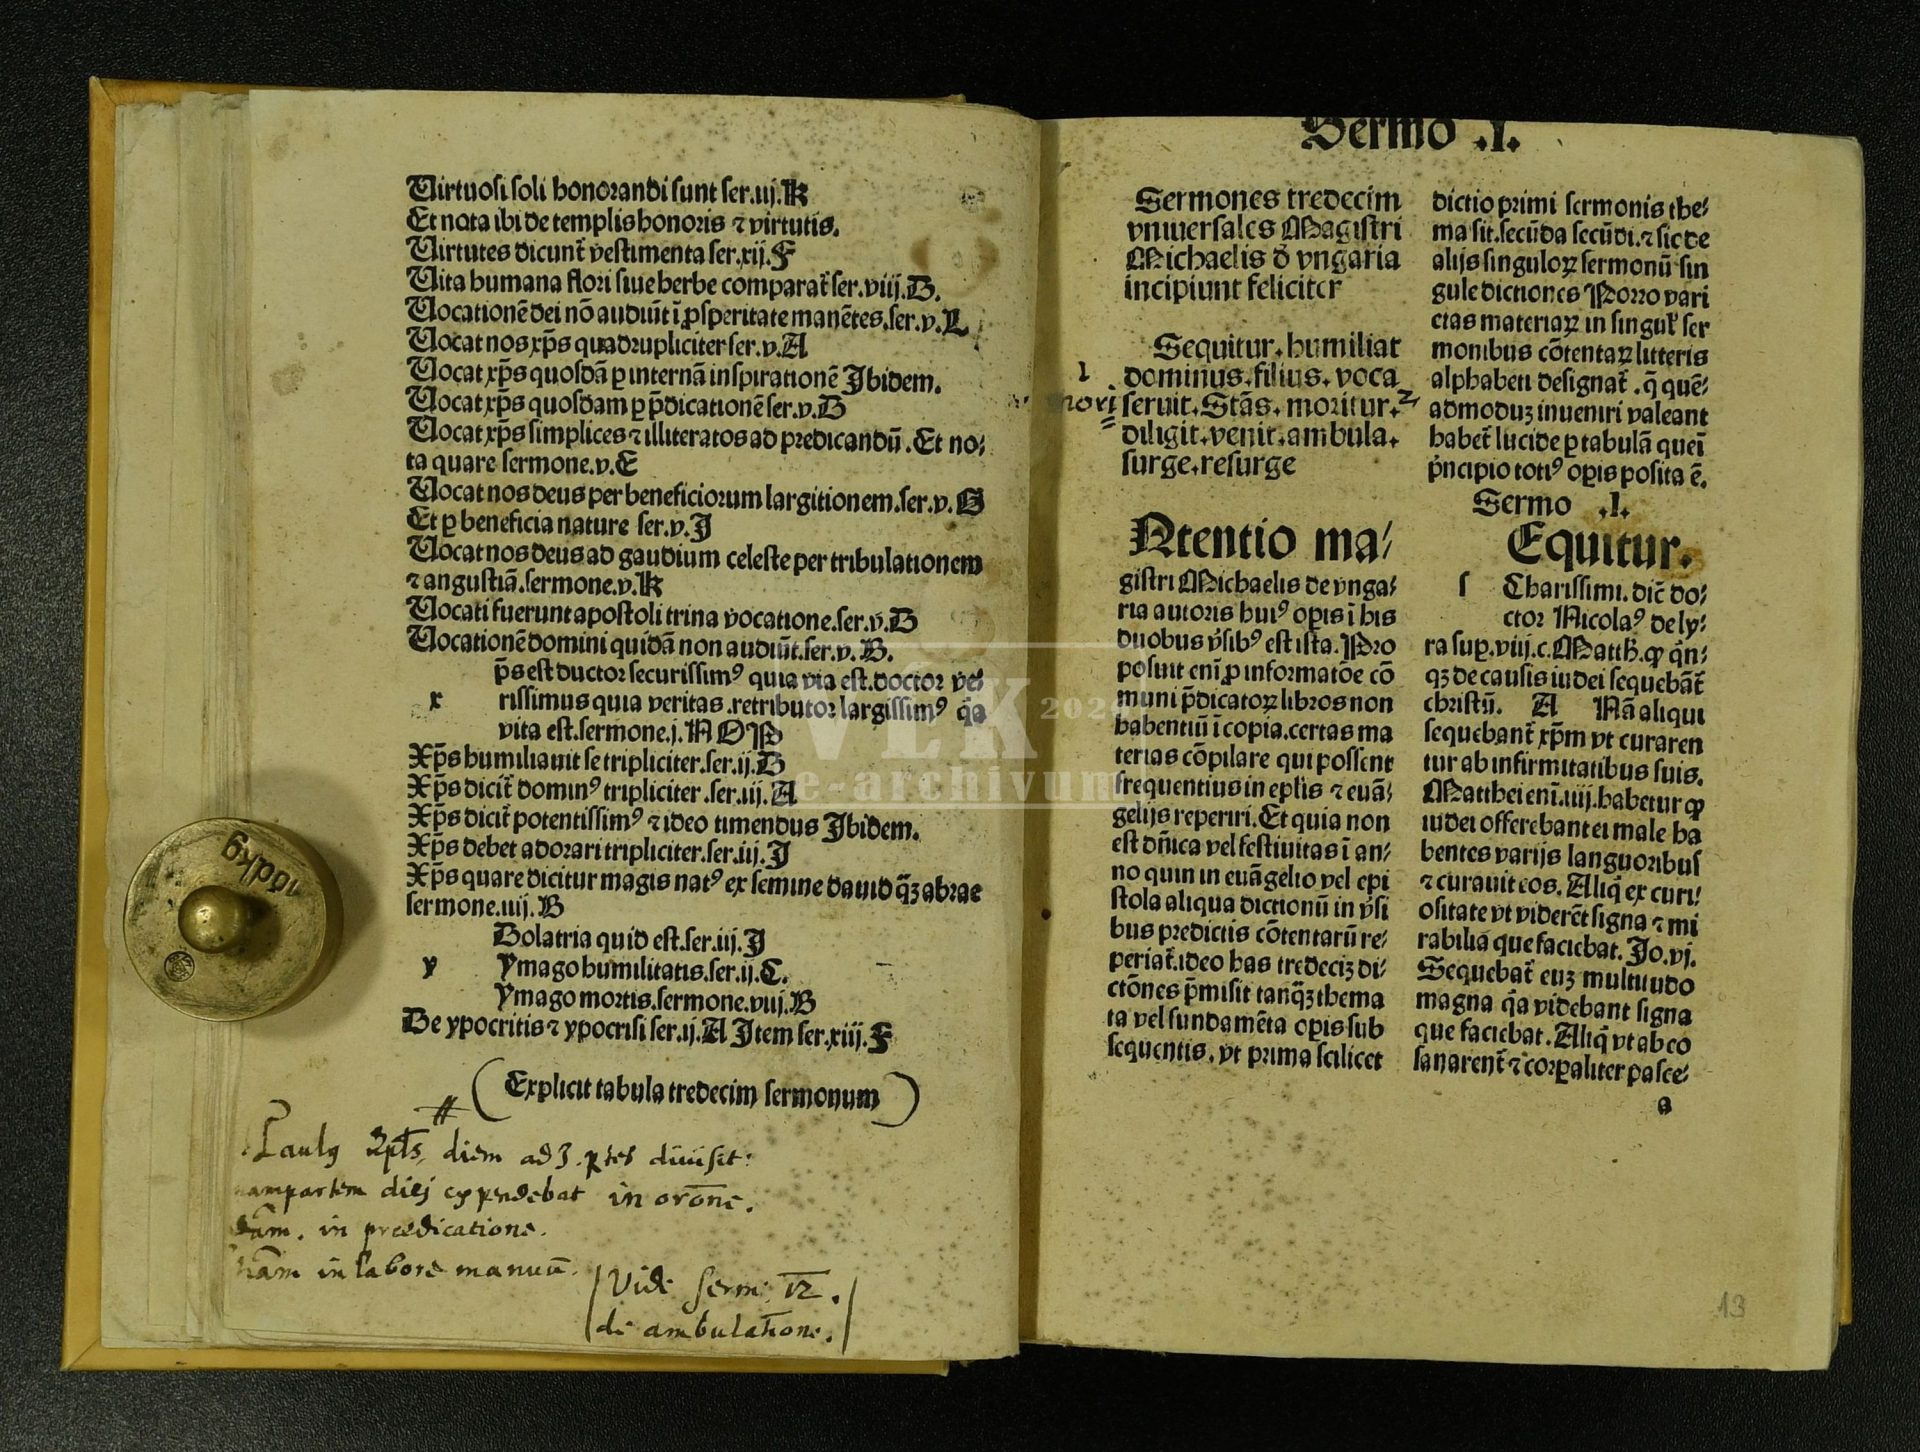 Virtuosi soli honorandi sunt ser.iij.K
Et nota ibi de templis honoris ⁊ virtutis.
Virtutes dicunt᷑ vestimenta ser.xij.F
Vita humana flori siue herbe comparat᷑ ser.viij.D.
Vocationē dei nō audiūt ī ꝓsperitate manētes.ser.v.L
Vocat nos xp̄s quadrupliciter ser.v.A
Vocat xp̄s quosdā ꝑ internā inspirationē Ibidem.
Vocat xp̄s quosdam ꝑ p̄dicationē ser.v.D
Vocat xp̄s simplices ⁊ illiteratos ad predicandū.Et no/
ta quare sermone.v.E
Vocat nos deus per beneficiorum largitionem.ser.v.G
Et ꝑ beneficia nature ser.v.I
Vocat nos deus ad gaudium celeste per tribulationem
⁊ angustiā.sermone.v.K
Vocati fuerunt apostoli trina vocatione.ser.v.D
Vocationē domini quidā non audiūt.ser.v.B.
p̄s est ductor securissimꝰ quia via est.doctor ve/
x rissimus quia veritas.retributor largissimꝰ q̄a
vita est.sermone.j.N O P
Xp̄s humiliauit se tripliciter.ser.ij.D
Xp̄s dicit᷑ dominꝰ tripliciter.ser.iij.A
Xp̄s dicit᷑ potentissimꝰ ⁊ ideo timendus Ibidem.
Xp̄s debet adorari tripliciter.ser.iij.I
Xp̄s quare dicitur magis natꝰ ex semine dauid q̄ꝫ abrae
sermone.iiij.B
Dolatria quid est.ser.iij.I
y ymago humilitatis.ser.ij.C.
ymago mortis.sermone.viij.B
De ypocritis ⁊ ypocrisi ser.ij.A Item ser.xiij.F
(Explicit tabula tredecim sermonum)
Paulꝰ Apl̄s, diem ad 3.ꝑtes diuisit:
nam partem diej expendebat in orōne.
dam. in praedicatione.
tiam in labore manuū.
Vide serm: 12.
de ambulatione.
100 dkg
Sermo .I.
Sermones tredecim
vniuersales Magistri
Michaelis d̄ vngaria
incipiunt feliciter
Sequitur.humiliat
1 dominus.filius.voca
mori seruit.Stās.moritur. 2
diligit.venit.ambula.
surge.resurge
Ntentio ma/
gistri Michaelis de vnga/
ria autoris huiꝰ oꝑis ī his
duobus v̄sibꝰ est ista.Pro
posuit enī ꝓ informatōe cō
muni p̄dicatoꝝ libros non
habentiū ī copia.certas ma
terias cōpilare qui possent
frequentius in ep̄lis ⁊ euā/
gelijs reperiri.Et quia non
est dn̄ica vel festiuitas ī an/
no quin in euāgelio vel epi
stola aliqua dictionū in v̄si
bus predictis cōtentarū re/
periat᷑.ideo has tredeciꝫ di/
ctōnes p̄misit tanq̄ꝫ thema
ta vel fundamēta oꝑis sub
sequentis.vt prima scilicet
dictio primi sermonis the/
ma sit.secūda secūdi.⁊ sic de
alijs singuloꝝ sermonū sin
gule dictiones Porro vari
etas materiaꝝ in singul᷑ ser
monibus cōtentaꝝ litteris
alphabeti designat᷑.q̄ quē/
admoduꝫ inueniri valeant
habet᷑ lucide ꝑ tabulā queī
p̄ncipio totiꝰ oꝑis posita ē.
Sermo .I.
Equitur.
s Charissimi.dic̄ do/
ctor Nicolaꝰ de ly/
ra suꝑ.viij.c.Matth.ꝙ q̄n/
qꝫ de causis iudei sequebāt᷑
christū. A Nā aliqui
sequebant᷑ xp̄m vt curaren
tur ab infirmitatibus suis.
Matthei enī.iiij.habetur ꝙ
iudei offerebant ei male ha
bentes varijs languoribus
⁊ curauit eos.Aliq̄ ex curi/
ositate vt viderēt signa ⁊ mi
rabilia que faciebat.Jo.vj.
Sequebat᷑ euꝫ multitudo
magna q̄a videbant signa
que faciebat.Aliq̄ vt ab eo
sanarent᷑ ⁊ corꝑaliter pasce/
a
13
VEK 2020
e-archivum